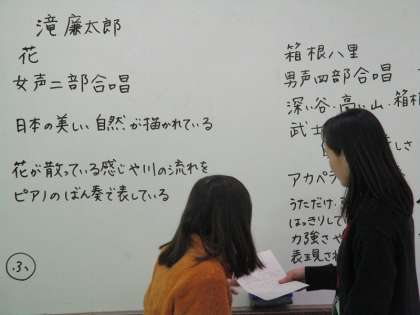 滝廉太郎
花
女声二部合唱
日本の美しい自然が描かれている
花が散っている感じや川の流れを
ピアノのばん奏で表している
ふ
箱根八里
男声四部合唱
深い谷・高い山・箱根
武士
さ
アカペラ
うただけ
はっきりして
力強さや
表現され